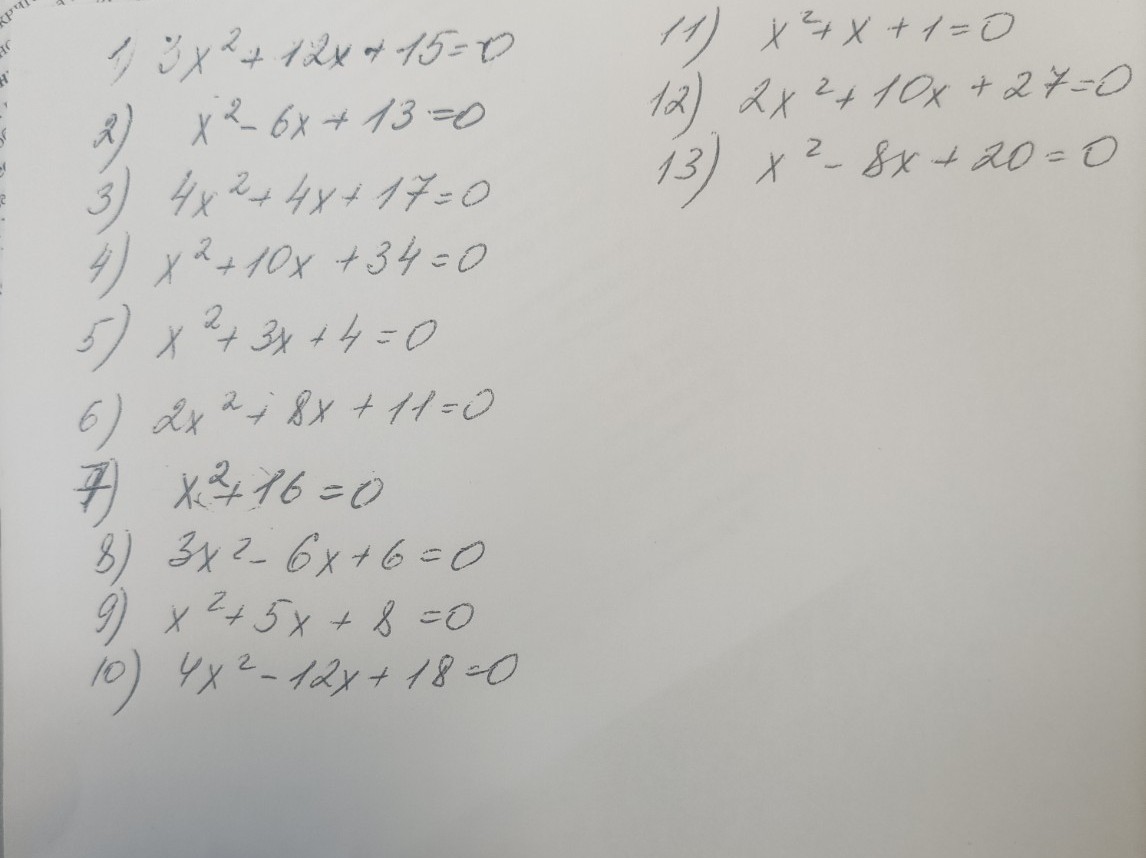 1) 3x²+12x+15=0
2) x²-6x+13=0
3) 4x²+4x+17=0
4) x²+10x+34=0
5) x²+3x+4=0
6) 2x²+8x+11=0
7) x²+16=0
8) 3x²-6x+6=0
9) x²+5x+8=0
10) 4x²-12x+18=0
11) x²+x+1=0
12) 2x²+10x+27=0
13) x²-8x+20=0